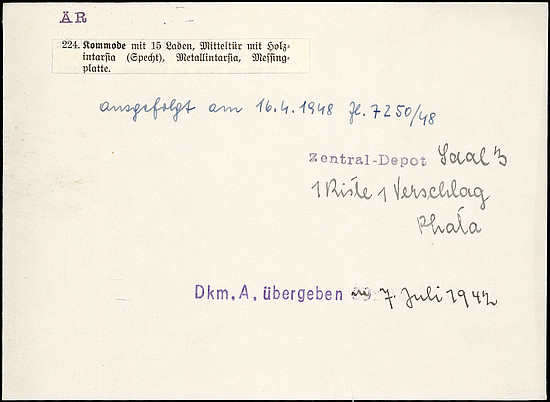 ÄR
224. Kommode mit 15 Laden, Mitteltür mit Holz-
intarsia (Specht), Metallintarsia, Messing-
platte.
ausgefolgt am 16.4.1948 Zl. 7250/48
Zentral-Depot Saal 3
1 Kiste 1 Verschlag
Dkm. A. übergeben 7. Juli 1942